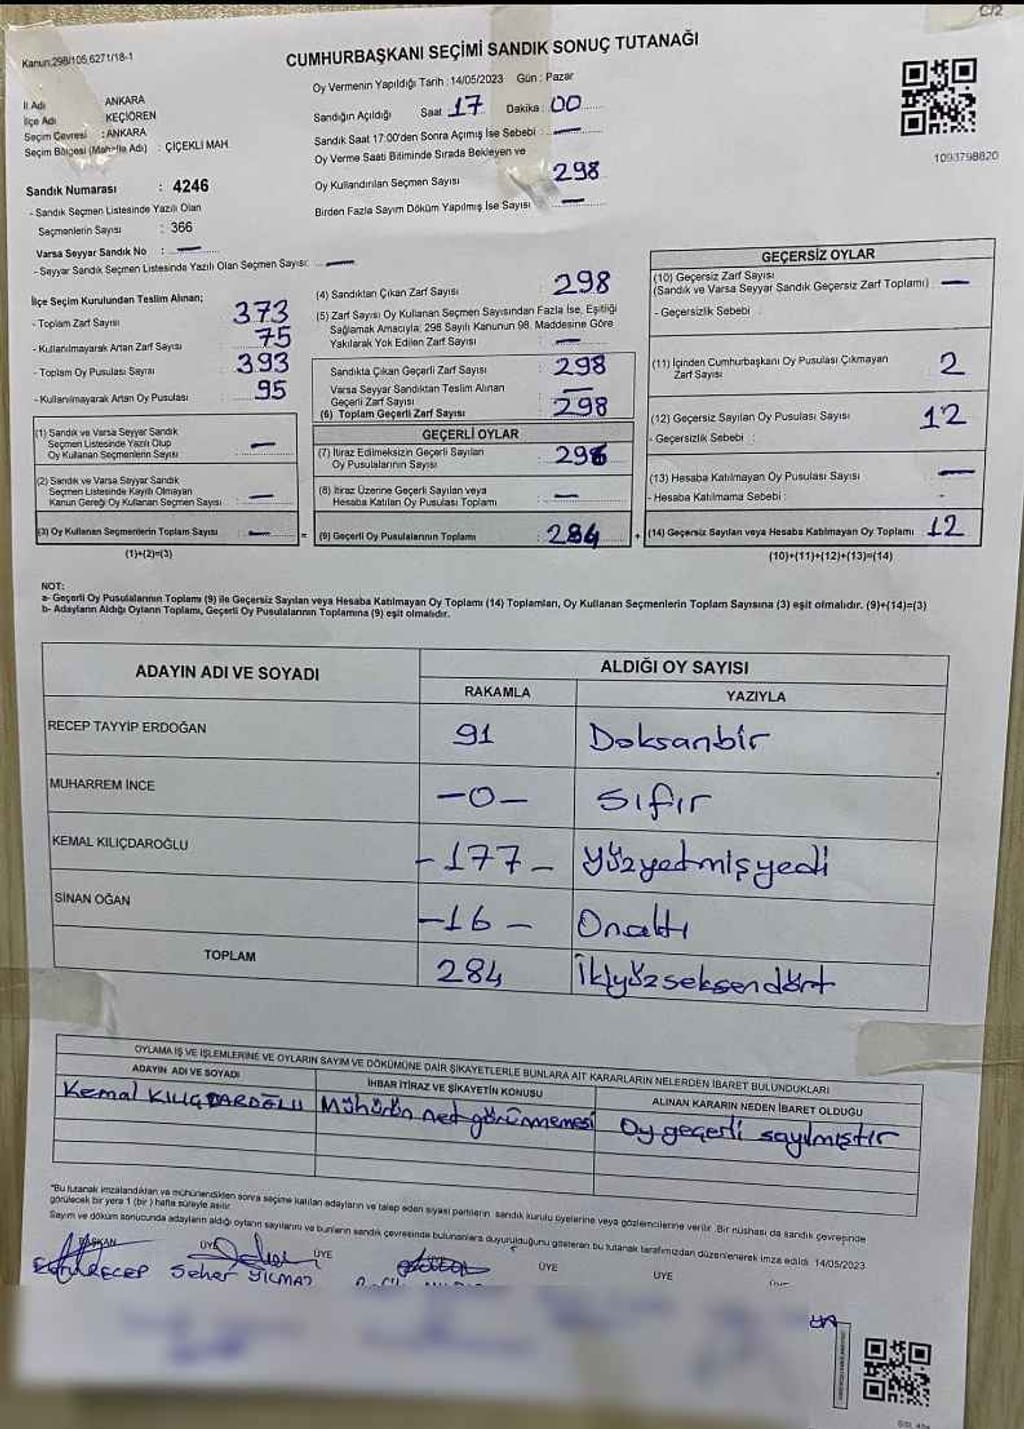 C/2
Kanun:298/105,6271/18-1
CUMHURBAŞKANI SEÇİMİ SANDIK SONUÇ TUTANAĞI
İl Adı ANKARA
İlçe Adı KEÇİÖREN
Seçim Çevresi : ANKARA
Seçim Bölgesi (Mahalle Adı) : ÇİÇEKLİ MAH.
Sandık Numarası : 4246
- Sandık Seçmen Listesinde Yazılı Olan
Seçmenlerin Sayısı : 366
Varsa Seyyar Sandık No : —
- Seyyar Sandık Seçmen Listesinde Yazılı Olan Seçmen Sayısı: —
Oy Vermenin Yapıldığı Tarih : 14/05/2023 Gün : Pazar
Sandığın Açıldığı Saat 17 Dakika : 00
Sandık Saat 17:00'den Sonra Açımış İse Sebebi : —
Oy Verme Saati Bitiminde Sırada Bekleyen ve
Oy Kullandırılan Seçmen Sayısı 298
Birden Fazla Sayım Döküm Yapılmış İse Sayısı —
1093798820
İlçe Seçim Kurulundan Teslim Alınan;
- Toplam Zarf Sayısı 373
- Kullanılmayarak Artan Zarf Sayısı 75
- Toplam Oy Pusulası Sayısı 393
- Kullanılmayarak Artan Oy Pusulası 95
(1) Sandık ve Varsa Seyyar Sandık
Seçmen Listesinde Yazılı Olup
Oy Kullanan Seçmenlerin Sayısı —
(2) Sandık ve Varsa Seyyar Sandık
Seçmen Listesinde Kayıtlı Olmayan
Kanun Gereği Oy Kullanan Seçmen Sayısı —
(3) Oy Kullanan Seçmenlerin Toplam Sayısı —
(1)+(2)=(3)
(4) Sandıktan Çıkan Zarf Sayısı 298
(5) Zarf Sayısı Oy Kullanan Seçmen Sayısından Fazla İse, Eşitliği
Sağlamak Amacıyla; 298 Sayılı Kanunun 98. Maddesine Göre
Yakılarak Yok Edilen Zarf Sayısı —
Sandıkta Çıkan Geçerli Zarf Sayısı 298
Varsa Seyyar Sandıktan Teslim Alınan
Geçerli Zarf Sayısı —
(6) Toplam Geçerli Zarf Sayısı : 298
GEÇERLİ OYLAR
(7) İtiraz Edilmeksizin Geçerli Sayılan
Oy Pusulalarının Sayısı
(8) İtiraz Üzerine Geçerli Sayılan veya
Hesaba Katılan Oy Pusulası Toplamı —
= (9) Geçerli Oy Pusulalarının Toplamı : 284
GEÇERSİZ OYLAR
(10) Geçersiz Zarf Sayısı
(Sandık ve Varsa Seyyar Sandık Geçersiz Zarf Toplamı) —
- Geçersizlik Sebebi :
(11) İçinden Cumhurbaşkanı Oy Pusulası Çıkmayan
Zarf Sayısı 2
(12) Geçersiz Sayılan Oy Pusulası Sayısı 12
- Geçersizlik Sebebi :
(13) Hesaba Katılmayan Oy Pusulası Sayısı —
- Hesaba Katılmama Sebebi :
+ (14) Geçersiz Sayılan veya Hesaba Katılmayan Oy Toplamı 12
(10)+(11)+(12)+(13)=(14)
NOT:
a- Geçerli Oy Pusulalarının Toplamı (9) ile Geçersiz Sayılan veya Hesaba Katılmayan Oy Toplamı (14) Toplamları, Oy Kullanan Seçmenlerin Toplam Sayısına (3) eşit olmalıdır. (9)+(14)=(3)
b- Adayların Aldığı Oyların Toplamı, Geçerli Oy Pusulalarının Toplamına (9) eşit olmalıdır.
ADAYIN ADI VE SOYADI
ALDIĞI OY SAYISI
RAKAMLA YAZIYLA
RECEP TAYYİP ERDOĞAN 91 Doksanbir
MUHARREM İNCE -0- Sıfır
KEMAL KILIÇDAROĞLU -177- Yüzyetmişyedi
SİNAN OĞAN -16- Onaltı
TOPLAM 284 İkiyüzseksendört
OYLAMA İŞ VE İŞLEMLERİNE VE OYLARIN SAYIM VE DÖKÜMÜNE DAİR ŞİKAYETLERLE BUNLARA AİT KARARLARIN NELERDEN İBARET BULUNDUKLARI
ADAYIN ADI VE SOYADI İHBAR İTİRAZ VE ŞİKAYETİN KONUSU ALINAN KARARIN NEDEN İBARET OLDUĞU
Kemal KILIÇDAROĞLU Mühürün net görünmemesi Oy geçerli sayılmıştır
*Bu tutanak imzalandıktan ve mühürlendikten sonra seçime katılan adayların ve talep eden siyasi partilerin sandık kurulu üyelerine veya gözlemcilerine verilir. Bir nüshası da sandık çevresinde
görülecek bir yere 1 (bir) hafta süreyle asılır.
Sayım ve döküm sonucunda adayların aldığı oyların sayılarını ve bunların sandık çevresinde bulunanlara duyurulduğunu gösteren bu tutanak tarafımızdan düzenlenerek imza edildi. 14/05/2023
BAŞKAN ÜYE ÜYE ÜYE ÜYE
RECEP Seher YILMAZ